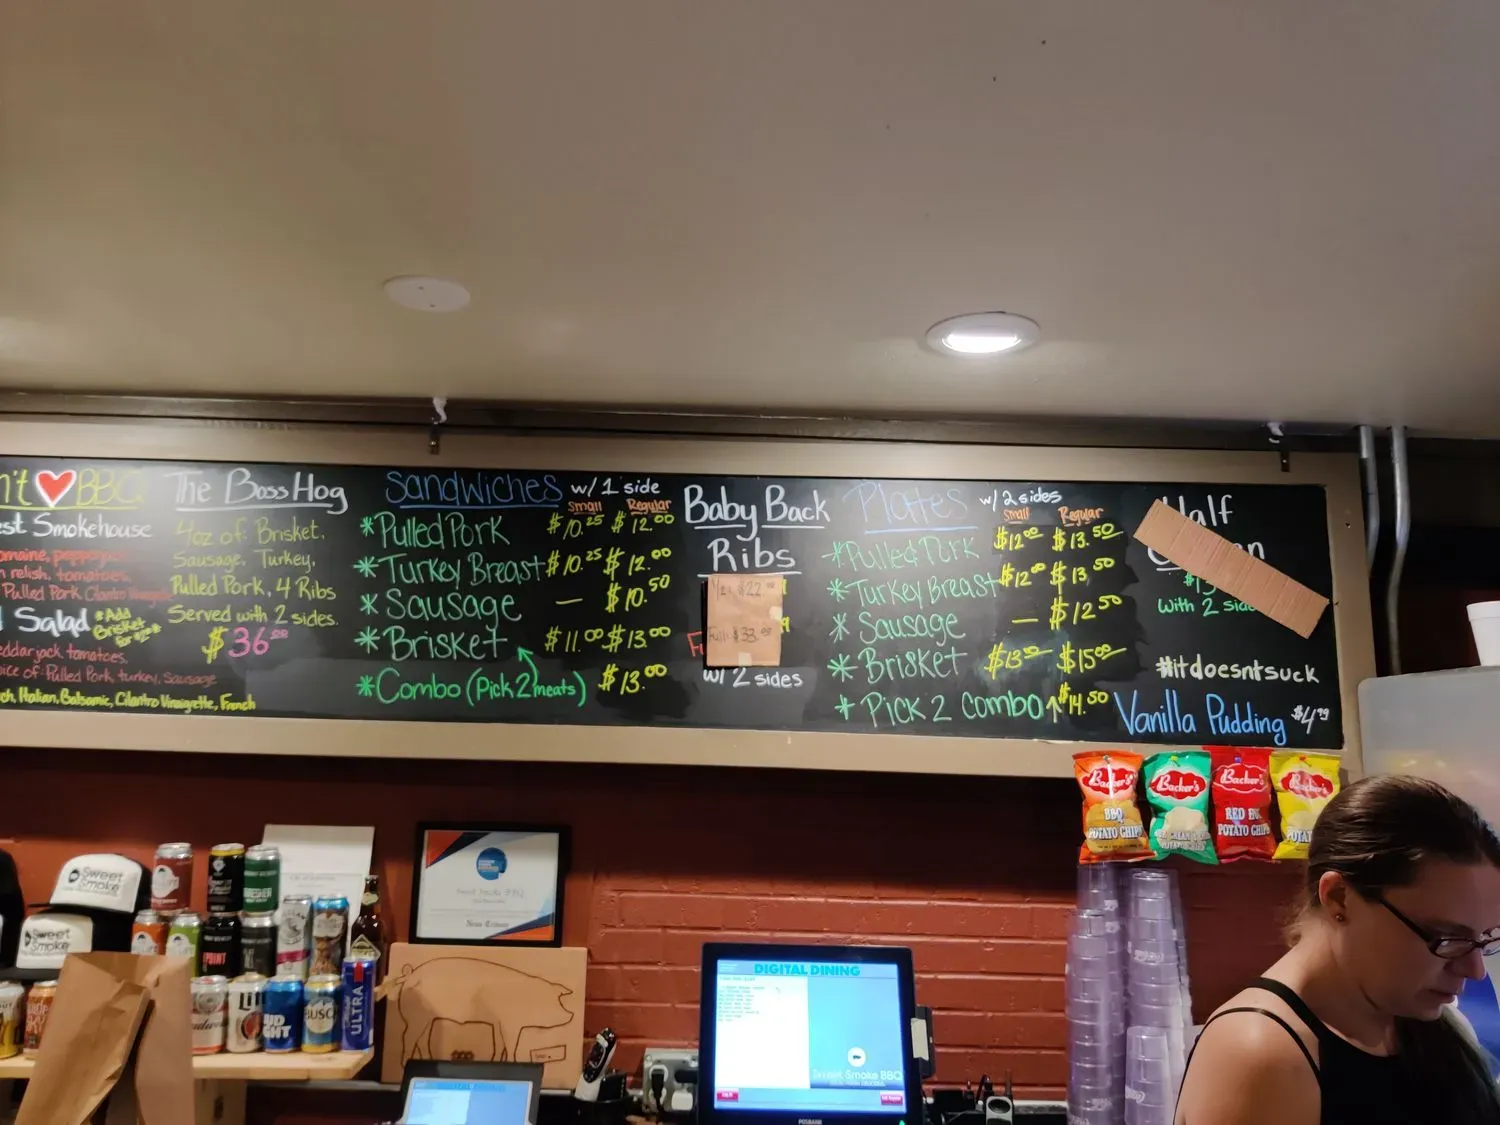 n't BBQ
est Smokehouse
omaine,
n relish, tomatoes.
Pulled Pork Cilantro
Salad *Add
Brisket
for
eddar jack, tomatoes.
oice of Pulled Pork, turkey, Sausage
ch, Italian, Balsamic, Cilantro Vinaigrette, French
The Boss Hog
4oz of: Brisket,
Sausage, Turkey,
Pulled Pork, 4 Ribs
Served with 2 sides.
$36
Sandwiches w/ 1 side
Small Regular
*Pulled Pork $10.25 $12.00
*Turkey Breast $10.25 $12.00
*Sausage — $10.50
*Brisket $11.00 $13.00
*Combo (Pick 2 meats) $13.00
Baby Back
Ribs
1/2: $22
Full: $33.
w/ 2 sides
Plates w/ 2 sides
Small Regular
*Pulled Pork $12.00 $13.50
*Turkey Breast $12.00 $13.50
*Sausage — $12.50
*Brisket $13.00 $15.00
*Pick 2 Combo $14.50
Half
with 2 side
#itdoesntsuck
Vanilla Pudding $4.99
Backer's
BBQ
POTATO CHIPS
Backer's
POTATO CHIPS
Backer's
RED HOT
POTATO CHIPS
Backer's
POTA
Sweet
Smoke
Sweet
Smoke
POINT
BUSCH
ULTRA
Sweet Smoke BBQ
News Tribune
DIGITAL DINING
Sweet Smoke BBQ
POSBANK